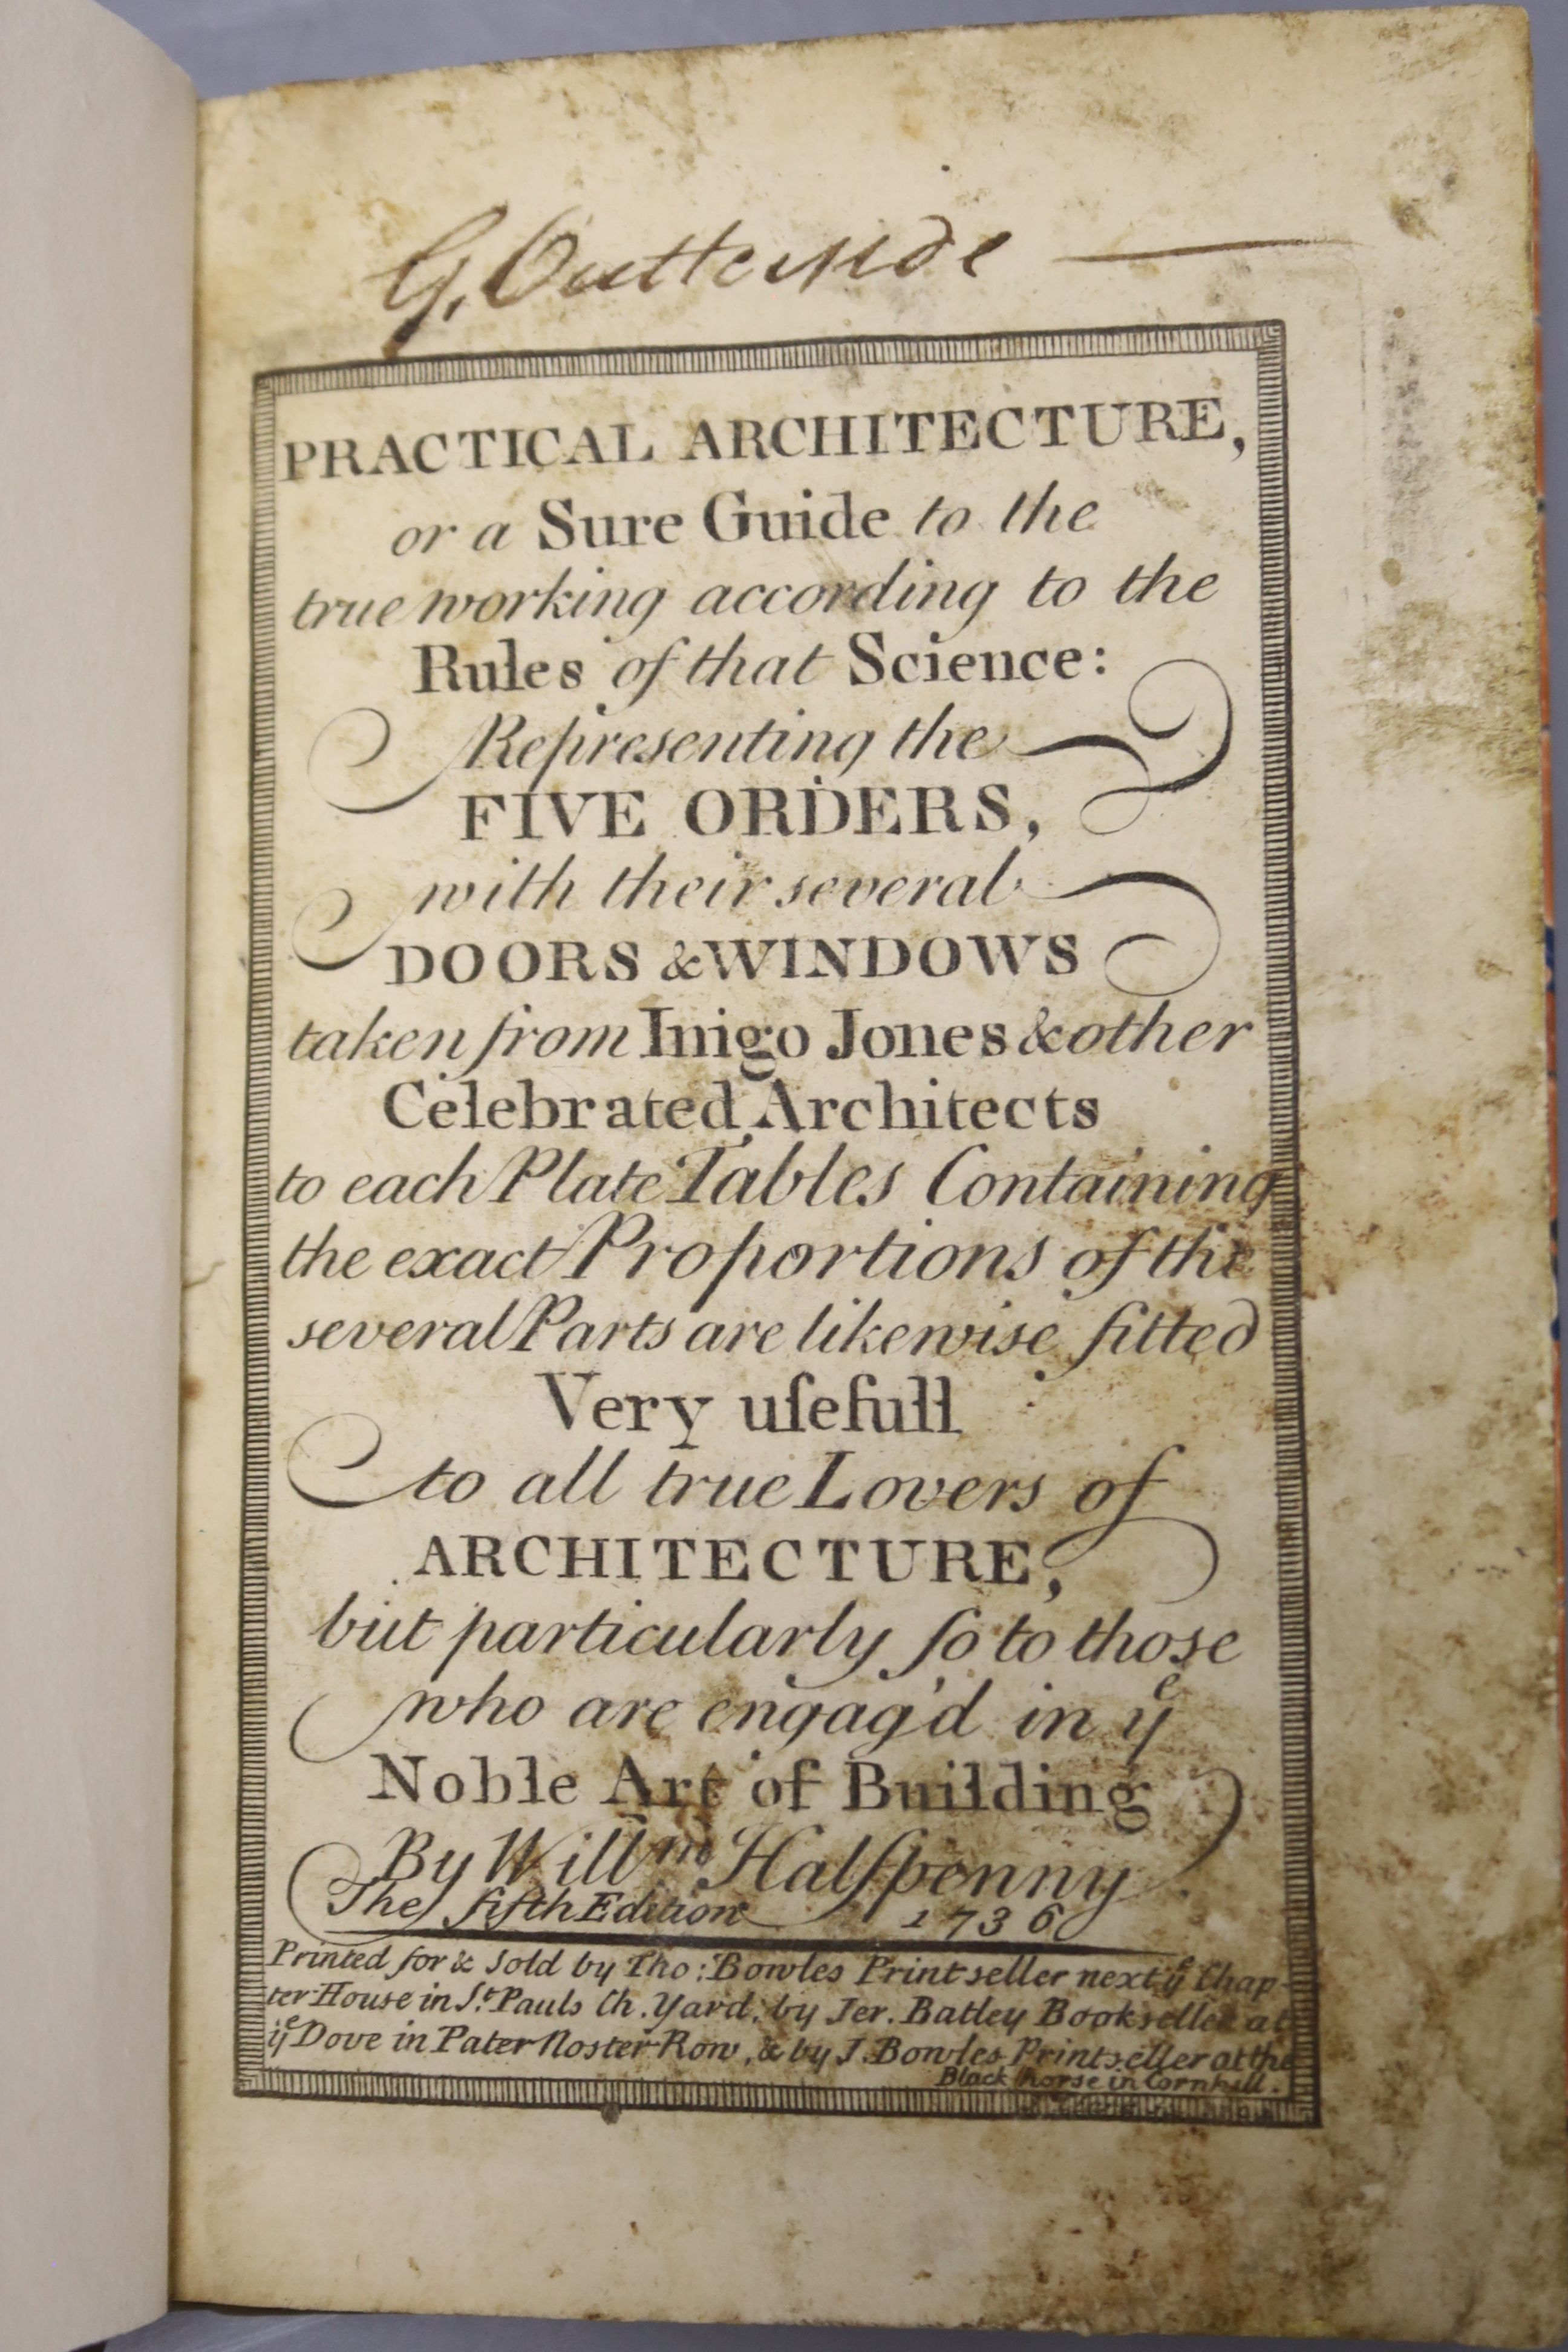 G. Outterside
PRACTICAL ARCHITECTURE,
or a Sure Guide to the
true working according to the
Rules of that Science:
Representing the
FIVE ORDERS,
with their several
DOORS & WINDOWS
taken from Inigo Jones & other
Celebrated Architects
to each Plate Tables Containing
the exact Proportions of the
several Parts are likewise fitted
Very uſefull
to all true Lovers of
ARCHITECTURE,
but particularly ſo to those
who are engag'd in yᵉ
Noble Art of Building
By Willᵐ Halfpenny
The fifth Edition 1736
Printed for & Sold by Tho: Bowles Printseller next yᵉ Chap-
ter House in Sᵗ. Pauls Ch. Yard, by Jer. Batley Bookseller at
yᵉ Dove in Pater Noster Row, & by J. Bowles Printseller at the
Black horse in Cornhill.